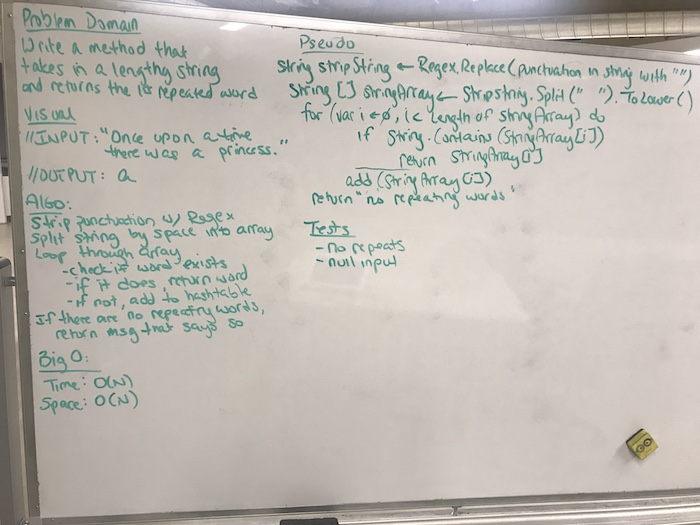 Problem Domain
Write a method that
takes in a lengthy string
and returns the 1st repeated word
Visual
//INPUT: "Once upon a time
there was a princess."
//OUTPUT: a
Algo:
Strip punctuation w/ Regex
Split string by space into array
Loop through array
- check if word exists
- if it does, return word
- if not, add to hashtable
If there are no repeating words,
return msg that says so
Big O:
Time: O(N)
Space: O(N)
Pseudo
String stripString ← Regex.Replace(punctuation in string with "")
String [] StringArray ← StripString.Split(" ").ToLower()
for (var i ← 0, i < length of StringArray) do
if String.Contains(StringArray[i])
return StringArray[i]
add (StringArray[i])
return "no repeating words"
Tests
- no repeats
- null input